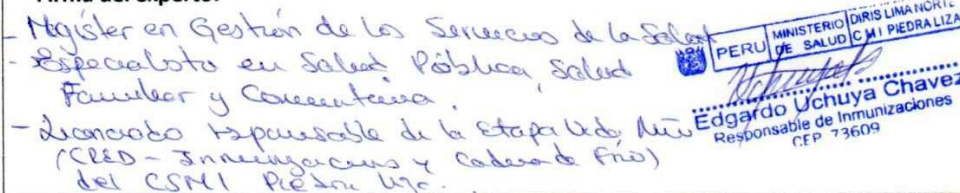 Firma del experto:
- Magíster en Gestión de los Servicios de la Salud
- Especialista en Salud Pública, Salud
Familiar y Comunitaria.
- Licenciado responsable de la Etapa Vida Niño
(CRED - Inmunizaciones y Cadena de Frío)
del CSMI Piedra Liza.
PERÚ MINISTERIO DE SALUD DIRIS LIMA NORTE C M I PIEDRA LIZA
Edgardo Uchuya Chavez
Responsable de Inmunizaciones
CEP 73609